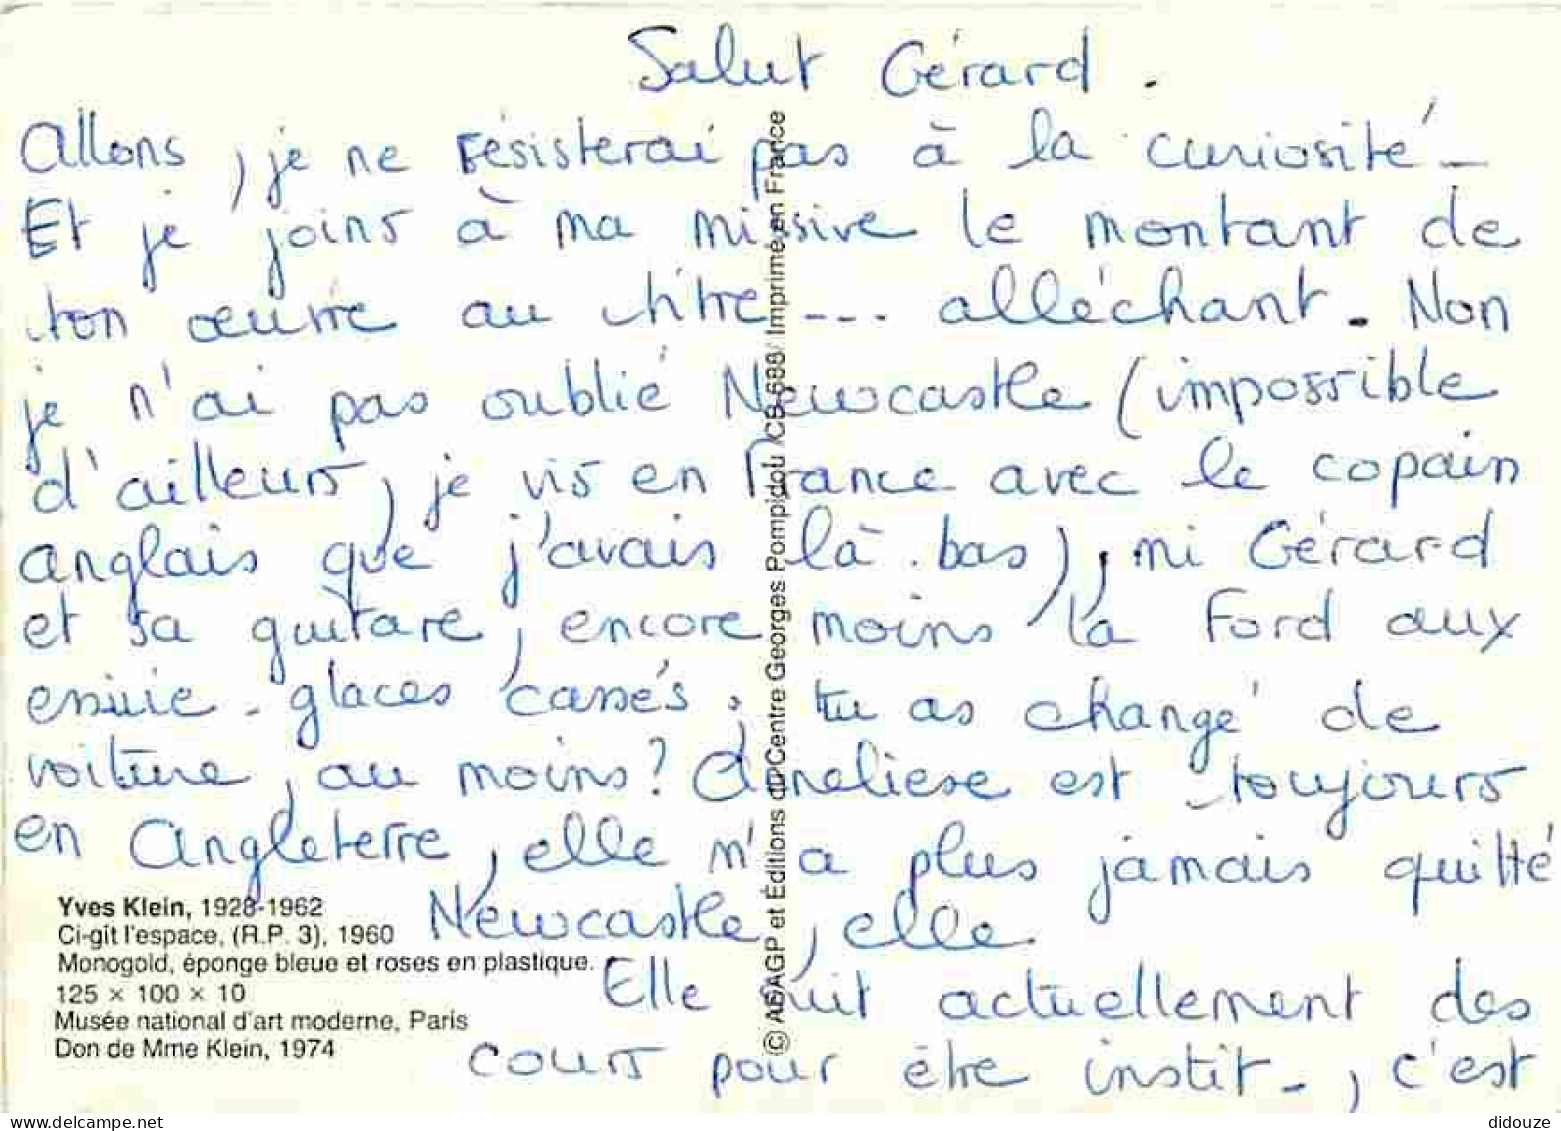 Salut Gérard.
Allons, je ne résisterai pas à la curiosité_
Et je joins à ma missive le montant de
ton œuvre au titre --- alléchant. Non
je n'ai pas oublié Newcastle (impossible
d'ailleurs, je vis en France avec le copain
anglais que j'avais là-bas), ni Gérard
et sa guitare, encore moins la Ford aux
essuie-glaces cassés, tu as changé de
voiture, au moins? Anneliese est toujours
en Angleterre, elle n'a plus jamais quitté
Newcastle, elle.
Elle suit actuellement des
cours pour être instit-, c'est
Yves Klein, 1928-1962
Ci-gît l'espace, (R.P. 3), 1960
Monogold, éponge bleue et roses en plastique.
125 × 100 × 10
Musée national d'art moderne, Paris
Don de Mme Klein, 1974
© ADAGP et Éditions du Centre Georges Pompidou /CB 688/ Imprimé en France
delcampe.net
didouze